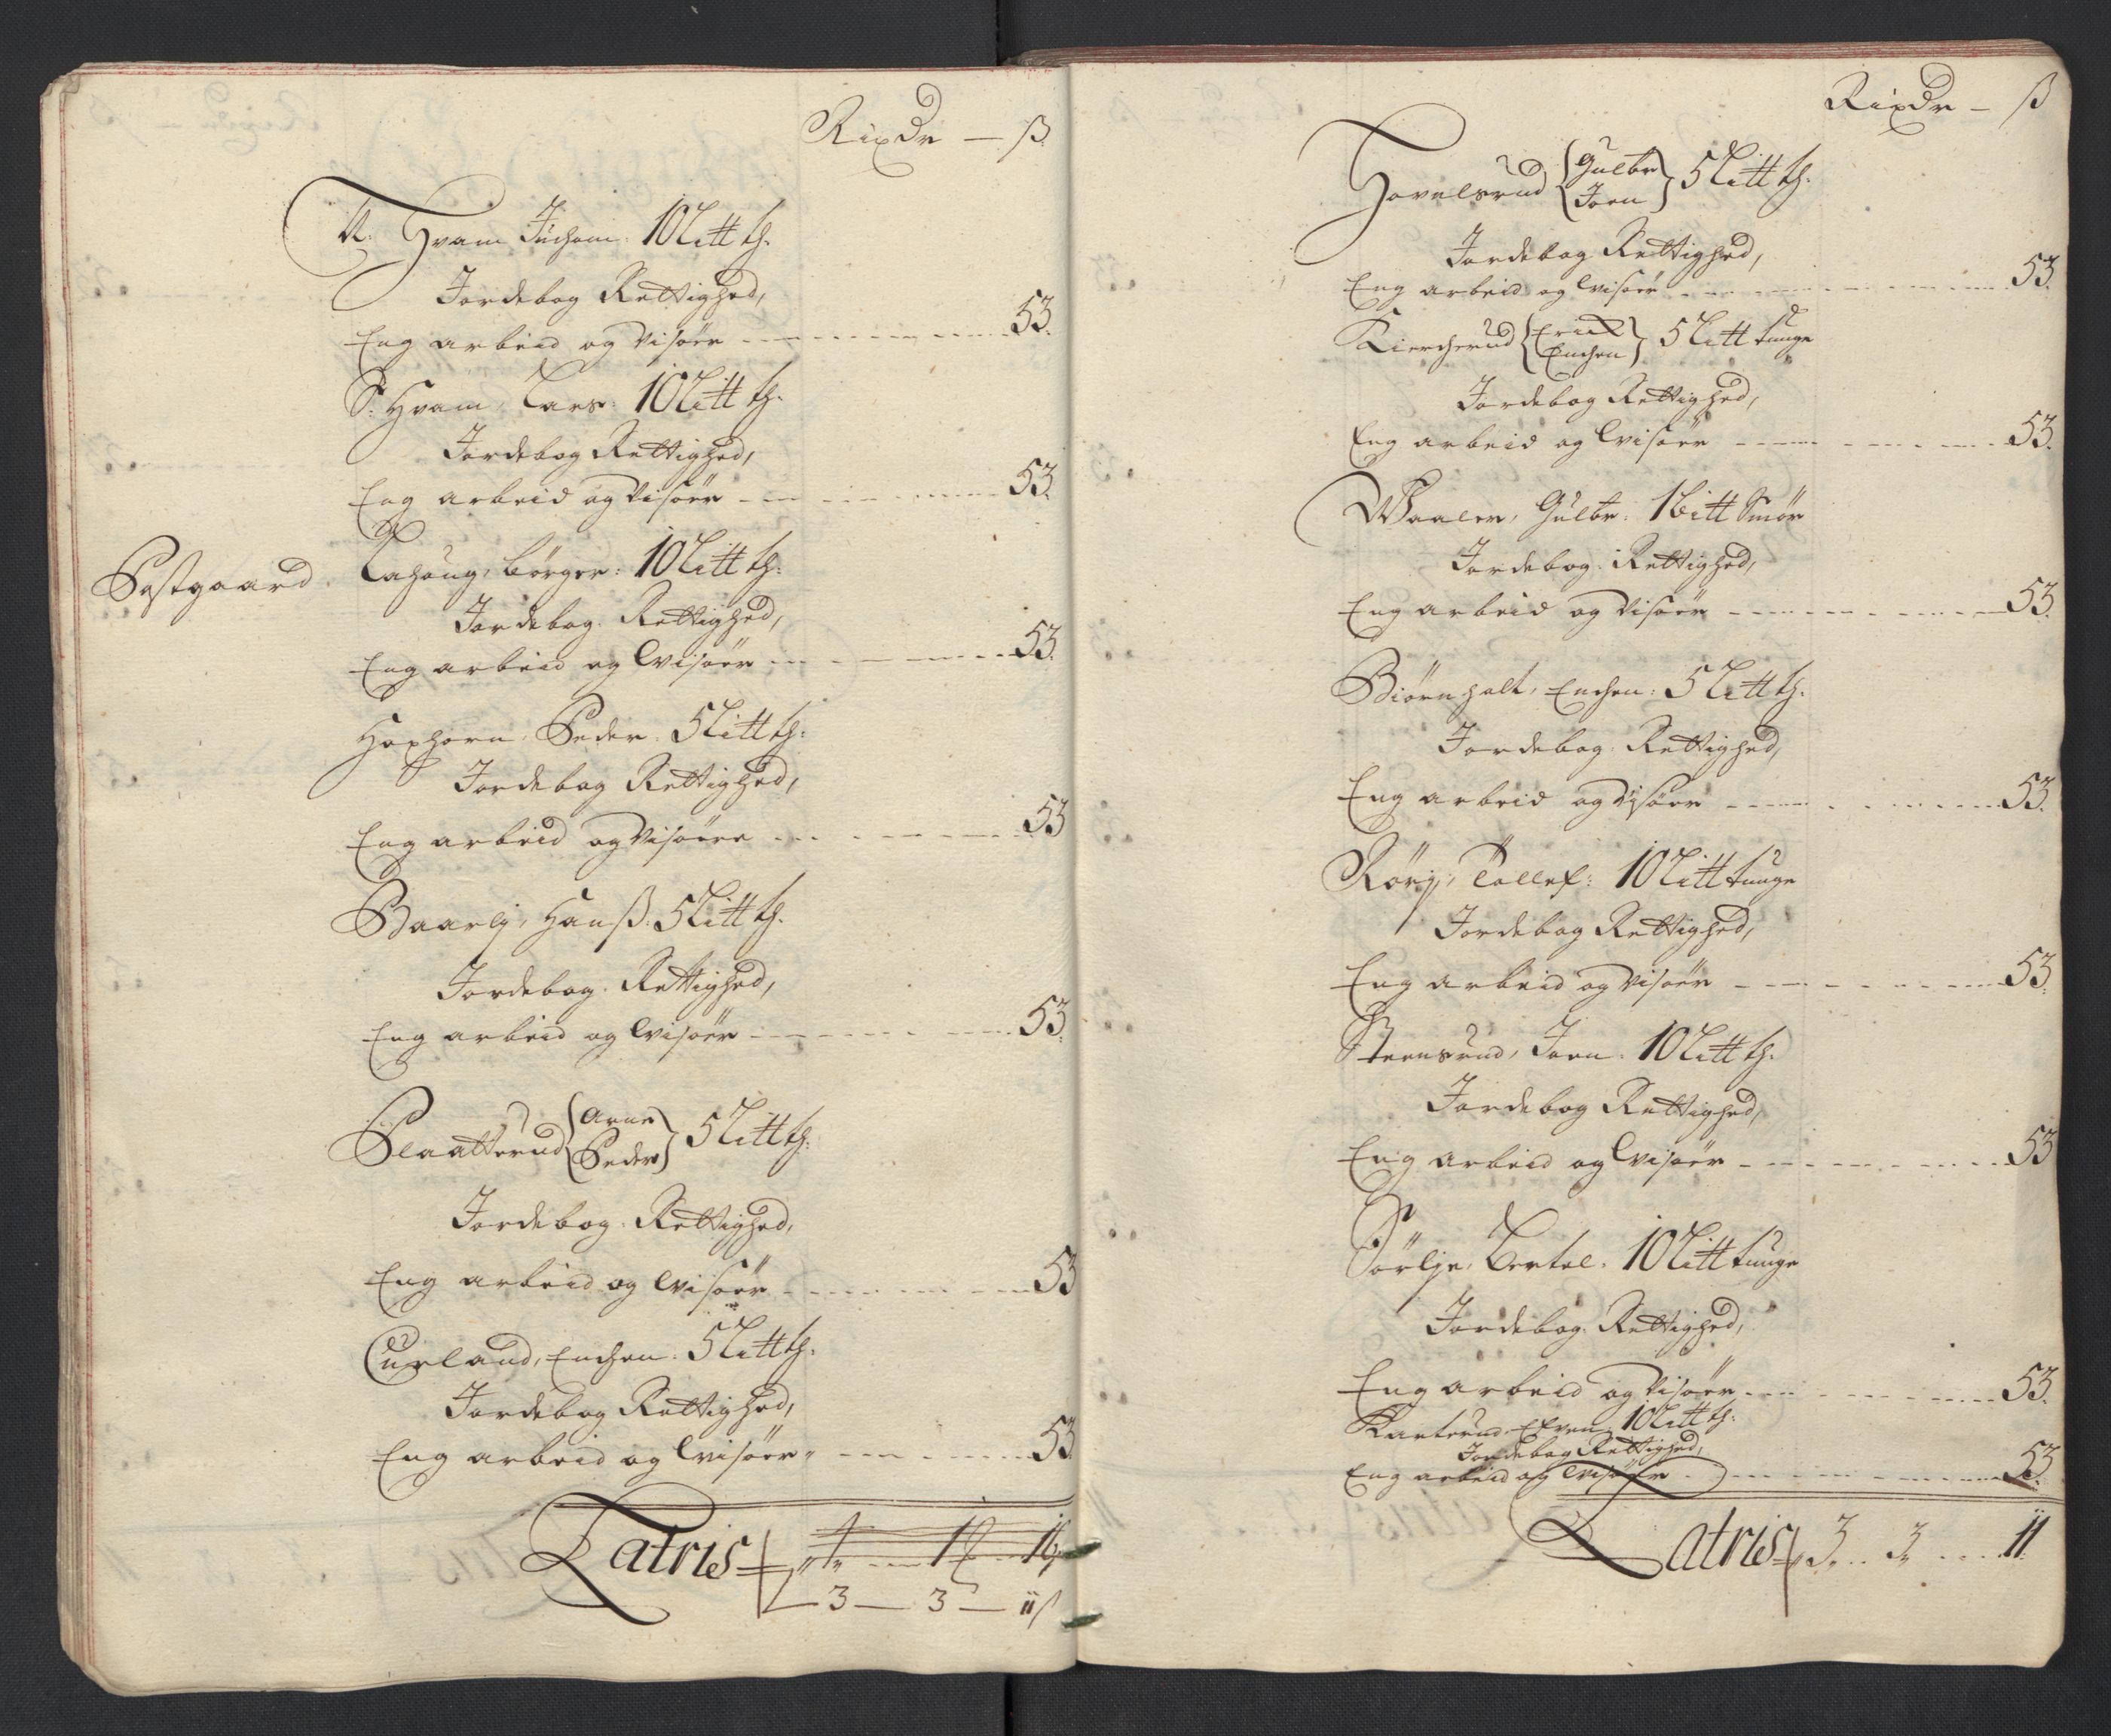 Rixdr — ß
N: Hvam Juchom: 10 Litt th:
Jordebog Rettighed,
Eng arbeid og Visøer 53.
S: Hvam, Lars: 10 Litt th:
Jordebog Rettighed,
Eng arbeid og Visøer 53.
Postgaard Lahaug, Børger: 10 Litt th:
Jordebog Rettighed,
Eng arbeid og Visøer 53.
Hoxhorn Peder: 5 Litt th:
Jordebog Rettighed,
Eng arbeid og Visøer 53
Baarlj, Hanß: 5 Litt th:
Jordebog Rettighed,
Eng arbeid og Visøer 53.
Slaatterud { Arne Peder } 5 Litt th:
Jordebog Rettighed,
Eng arbeid og Visøer 53
Curland, Enchen: 5 Litt th:
Jordebog Rettighed,
Eng arbeid og Visøer 53.
Latris
3 — 3 — 11 ß
Rixdr — ß
Hovelsrud { Gulbr Joen } 5 Litt th:
Jordebog Rettighed,
Eng arbeid og Visøer 53.
Kiercherud { Erich Enchen } 5 Litt tunge
Jordebog Rettighed,
Eng arbeid og Visøer 53.
Waaler, Gulbr: 1 bitt Smør
Jordebog Rettighed,
Eng arbeid og Visøer 53.
Biørnholt, Enchen: 5 Litt th:
Jordebog Rettighed,
Eng arbeid og Visøer 53.
Rørj, Tollef: 10 Litt tunge
Jordebog Rettighed,
Eng arbeid og Visøer 53.
Steensrud, Joen: 10 Litt th:
Jordebog Rettighed,
Eng arbeid og Visøer 53
Sørlje, Bertel: 10 Litt tunge
Jordebog Rettighed,
Eng arbeid og Visøer 53.
Even 10 Litt th:
Jordebog Rettighed,
Eng arbeid og Visøer 53.
Latris 3 3 11